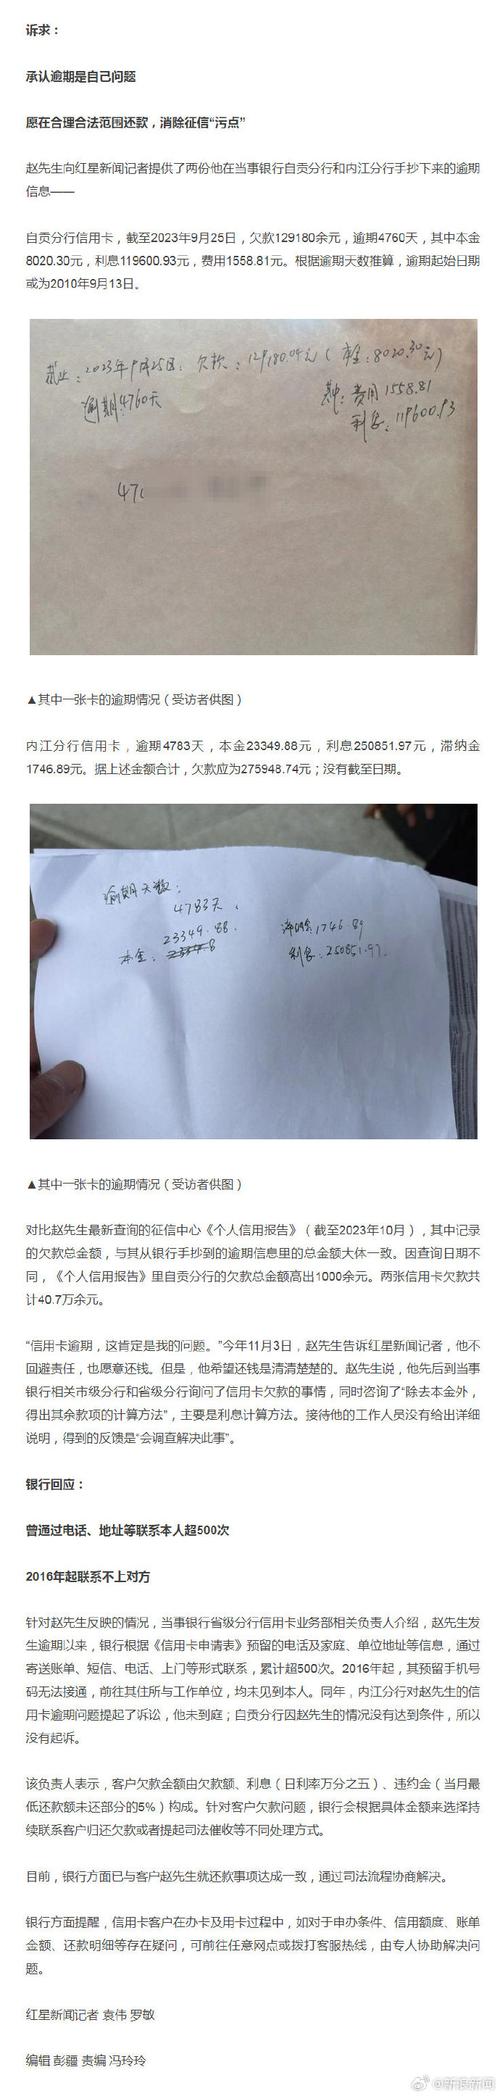 诉求：
承认逾期是自己问题
愿在合理合法范围还款，消除征信“污点”
赵先生向红星新闻记者提供了两份他在当事银行自贡分行和内江分行手抄下来的逾期
信息——
自贡分行信用卡，截至2023年9月25日，欠款129180余元，逾期4760天，其中本金
8020.30元，利息119600.93元，费用1558.81元。根据逾期天数推算，逾期起始日期
或为2010年9月13日。
截止：2023年9月25日：欠款：129180.04元（本金：8020.30元）
逾期：4760天
其中：费用1558.81
利息：119600.93
47
▲其中一张卡的逾期情况（受访者供图）
内江分行信用卡，逾期4783天，本金23349.88元，利息250851.97元，滞纳金
1746.89元。据上述金额合计，欠款应为275948.74元；没有截至日期。
逾期天数：
4783天，
23349.88.
滞纳金：1746.89
本金：
利息：250851.97.
▲其中一张卡的逾期情况（受访者供图）
对比赵先生最新查询的征信中心《个人信用报告》（截至2023年10月），其中记录
的欠款总金额，与其从银行手抄到的逾期信息里的总金额大体一致。因查询日期不
同，《个人信用报告》里自贡分行的欠款总金额高出1000余元。两张信用卡欠款共
计40.7万余元。
“信用卡逾期，这肯定是我的问题。”今年11月3日，赵先生告诉红星新闻记者，他不
回避责任，也愿意还钱。但是，他希望还钱是清清楚楚的。赵先生说，他先后到当事
银行相关市级分行和省级分行询问了信用卡欠款的事情，同时咨询了“除去本金外，
得出其余款项的计算方法”，主要是利息计算方法。接待他的工作人员没有给出详细
说明，得到的反馈是“会调查解决此事”。
银行回应：
曾通过电话、地址等联系本人超500次
2016年起联系不上对方
针对赵先生反映的情况，当事银行省级分行信用卡业务部相关负责人介绍，赵先生发
生逾期以来，银行根据《信用卡申请表》预留的电话及家庭、单位地址等信息，通过
寄送账单、短信、电话、上门等形式联系，累计超500次。2016年起，其预留手机号
码无法接通，前往其住所与工作单位，均未见到本人。同年，内江分行对赵先生的信
用卡逾期问题提起了诉讼，他未到庭；自贡分行因赵先生的情况没有达到条件，所以
没有起诉。
该负责人表示，客户欠款金额由欠款额、利息（日利率万分之五）、违约金（当月最
低还款额未还部分的5%）构成。针对客户欠款问题，银行会根据具体金额来选择持
续联系客户归还欠款或者提起司法催收等不同处理方式。
目前，银行方面已与客户赵先生就还款事项达成一致，通过司法流程协商解决。
银行方面提醒，信用卡客户在办卡及用卡过程中，如对于申办条件、信用额度、账单
金额、还款明细等存在疑问，可前往任意网点或拨打客服热线，由专人协助解决问
题。
红星新闻记者 袁伟 罗敏
编辑 彭疆 责编 冯玲玲
@新浪新闻